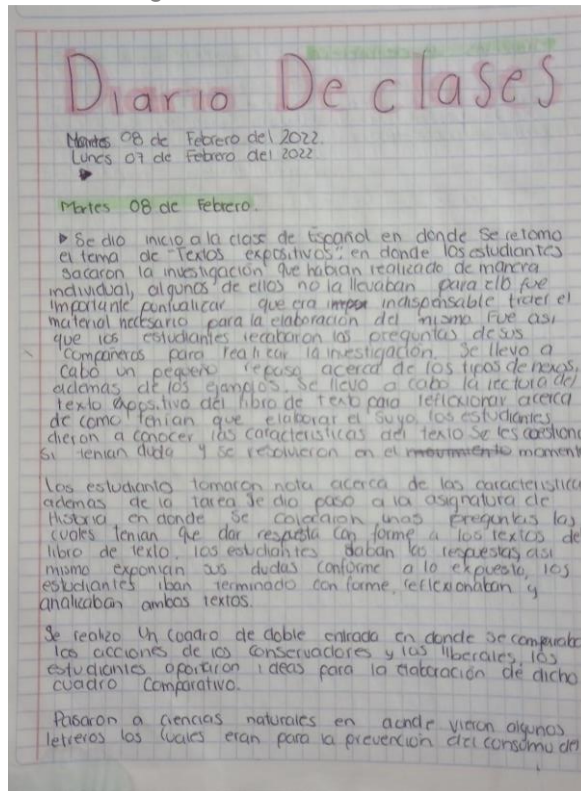 Diario De clases
Martes 08 de Febrero del 2022.
Lunes 07 de Febrero del 2022
Martes 08 de Febrero.
Se dio inicio a la clase de Español en donde se retomo
el tema de "Textos expositivos" en donde los estudiantes
sacaron la investigación que habian realizado de manera
individual, algunos de ellos no la llevaban para ello fue
importante puntualizar que era indispensable traer el
material necesario para la elaboración del mismo Fue asi
que los estudiantes recabaron las preguntas de sus
compañeros para realizar la investigación. Se llevo a
cabo un pequeño repaso acerca de los tipos de nexos,
ademas de los ejemplos. Se llevo a cabo la lectura del
texto expositivo del libro de texto para reflexionar acerca
de como tenian que elaborar el suyo, los estudiantes
dieron a conocer las caracteristicas del texto se les cuestiono
si tenian duda y se resolvieron en el movimiento moment
Los estudiants tomaron nota acerca de las caracteristica
ademas de la tarea se dio paso a la asignatura de
Historia en donde se colocaron unas preguntas las
cuales tenian que dar respuesta con forme a los textos de
libro de texto, los estudiantes daban las respuestas asi
mismo exponian sus dudas conforme a lo expuesto, los
estudiantes iban terminado con forme, reflexionaban y
analizaban ambos textos.
Se realizo un cuadro de doble entrada en donde se comparaba
las acciones de los conservadores y las liberales, los
estudiantes aportaron ideas para la elaboración de dicho
cuadro comparativo.
Pasaron a ciencias naturales en donde vieron algunos
letreros los cuales eran para la prevención del consumo de